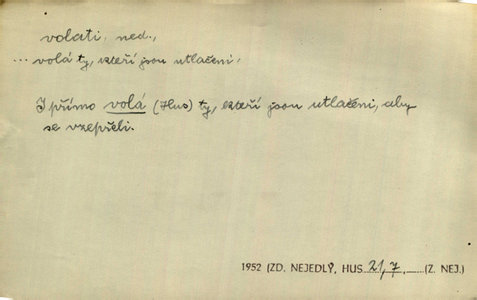 volati, ned.,
... volá ty, kteří jsou utlačeni,
I přímo volá (Hus) ty, kteří jsou utlačeni, aby
se vzepřeli.
1952 (ZD. NEJEDLÝ, HUS 21, 7, ...... (Z. NEJ.)